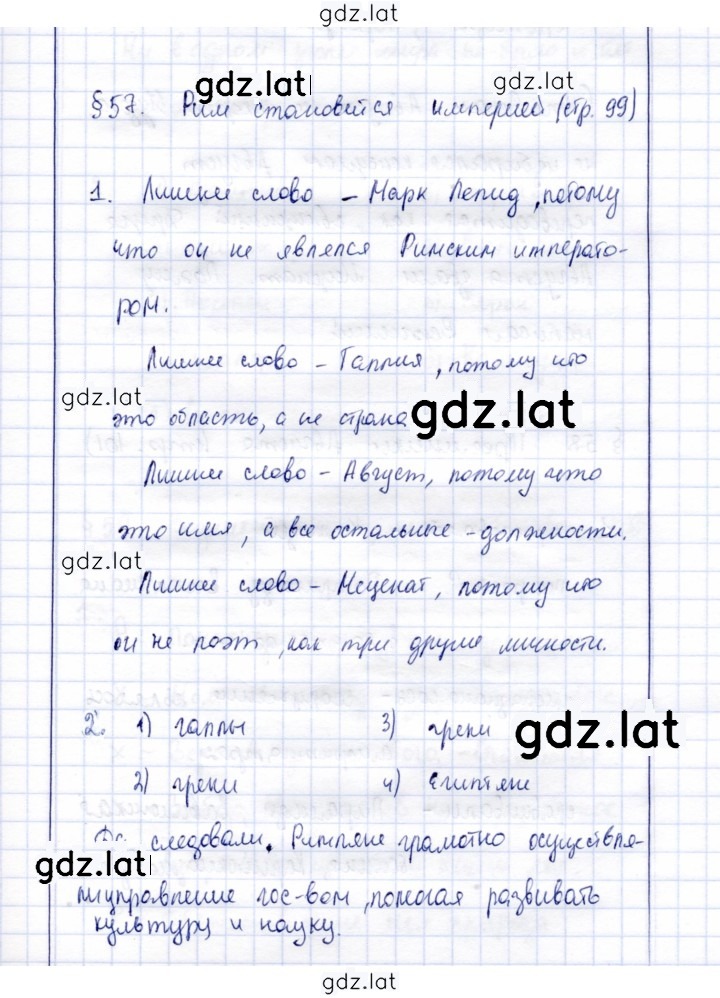 gdz.lat
gdz.lat gdz.lat
§57. Рим становится империей (стр. 99)
1. Лишнее слово – Марк Лепид, потому
что он не являлся Римским императо-
ром.
Лишнее слово – Галлия, потому что
gdz.lat
это область, а не страна gdz.lat
Лишнее слово – Август, потому что
это имя, а все остальные – должности.
gdz.lat
Лишнее слово – Меценат, потому что
он не поэт, как три другие личности.
2. 1) галлы 3) греки
gdz.lat
2) греки 4) египтяне
следовали. Римляне грамотно осуществля-
gdz.lat
ли управление гос-вом, помогая развивать
культуру и науку.
gdz.lat